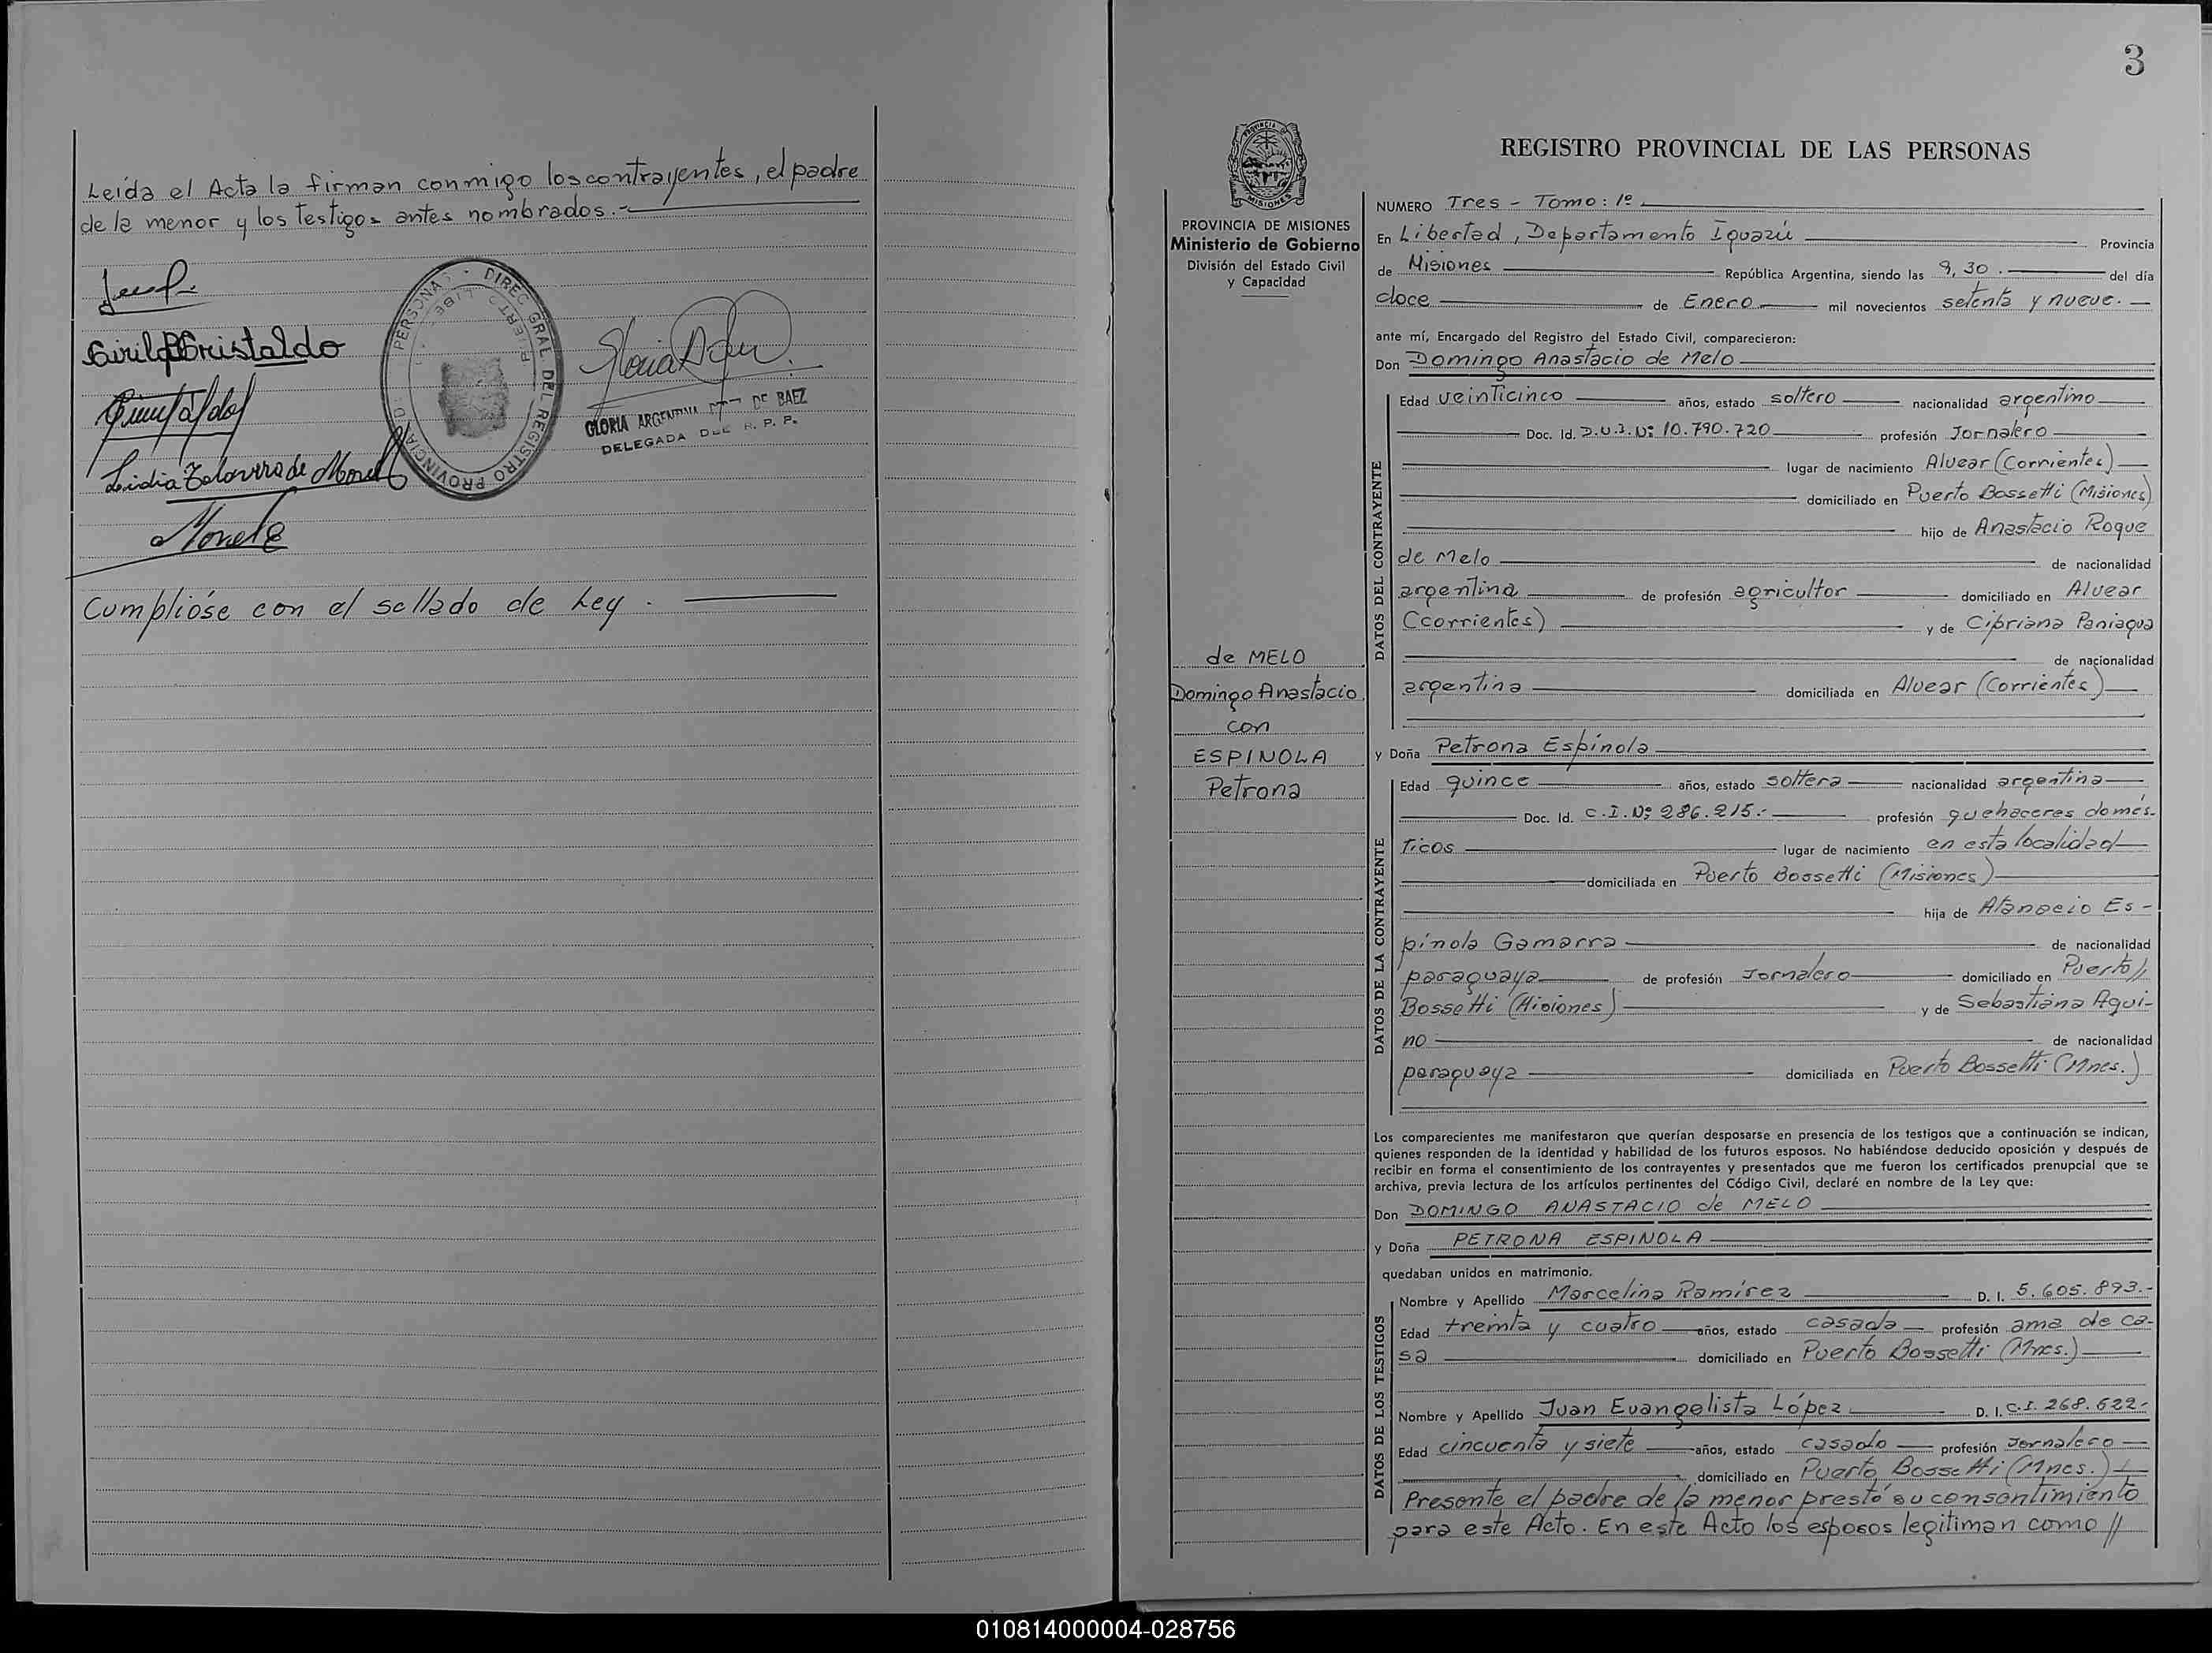 Leída el Acta la firman conmigo los contrayentes, el padre
de la menor y los testigos antes nombrados.-
Cirilo Cristaldo
Lidia Talavera de Morel
DIREC. GRAL. DEL REGISTRO PROVINCIAL D PERSONA
LIBERTAD
GLORIA ARGENTINA DE BAEZ
DELEGADA DEL R. P. P.
Cumplióse con el sellado de Ley.
3
PROVINCIA DE MISIONES
PROVINCIA DE MISIONES
Ministerio de Gobierno
División del Estado Civil
y Capacidad
de MELO
Domingo Anastacio
con
ESPINOLA
Petrona
REGISTRO PROVINCIAL DE LAS PERSONAS
NUMERO Tres - Tomo: 1º
En Libertad, Departamento Iguazú Provincia
de Misiones República Argentina, siendo las 9,30. del día
doce de Enero mil novecientos setenta y nueve.
ante mí, Encargado del Registro del Estado Civil, comparecieron:
Don Domingo Anastacio de Melo
DATOS DEL CONTRAYENTE
Edad veinticinco años, estado soltero nacionalidad argentino
Doc. Id. D.U.3.Nº 10.790.720 profesión Jornalero
lugar de nacimiento Alvear (Corrientes)
domiciliado en Puerto Bossetti (Misiones)
hijo de Anastacio Roque
de Melo de nacionalidad
argentina de profesión agricultor domiciliado en Alvear
(Corrientes) y de Cipriana Paniagua
de nacionalidad
argentina domiciliada en Alvear (Corrientes)
y Doña Petrona Espínola
DATOS DE LA CONTRAYENTE
Edad quince años, estado soltera nacionalidad argentina
Doc. Id. C.I.Nº 286.215.- profesión quehaceres domés-
ticos lugar de nacimiento en esta localidad
domiciliada en Puerto Bossetti (Misiones)
hija de Atanacio Es-
pínola Gamarra de nacionalidad
paraguaya de profesión Jornalero domiciliado en Puerto//
Bossetti (Misiones) y de Sebastiana Aqui-
no de nacionalidad
paraguaya domiciliada en Puerto Bossetti (Mnes.)
Los comparecientes me manifestaron que querían desposarse en presencia de los testigos que a continuación se indican,
quienes responden de la identidad y habilidad de los futuros esposos. No habiéndose deducido oposición y después de
recibir en forma el consentimiento de los contrayentes y presentados que me fueron los certificados prenupcial que se
archiva, previa lectura de los artículos pertinentes del Código Civil, declaré en nombre de la Ley que:
Don DOMINGO ANASTACIO de MELO
y Doña PETRONA ESPINOLA
quedaban unidos en matrimonio.
DATOS DE LOS TESTIGOS
Nombre y Apellido Marcelina Ramírez D. I. 5.605.893.-
Edad treinta y cuatro años, estado casada profesión ama de ca-
sa domiciliado en Puerto Bossetti (Mnes.)
Nombre y Apellido Juan Evangelista López D. I. C.I. 268.622-
Edad cincuenta y siete años, estado casado profesión Jornalero
domiciliado en Puerto Bossetti (Mnes.)
Presente el padre de la menor prestó su consentimiento
para este Acto. En este Acto los esposos legitiman como //
010814000004-028756